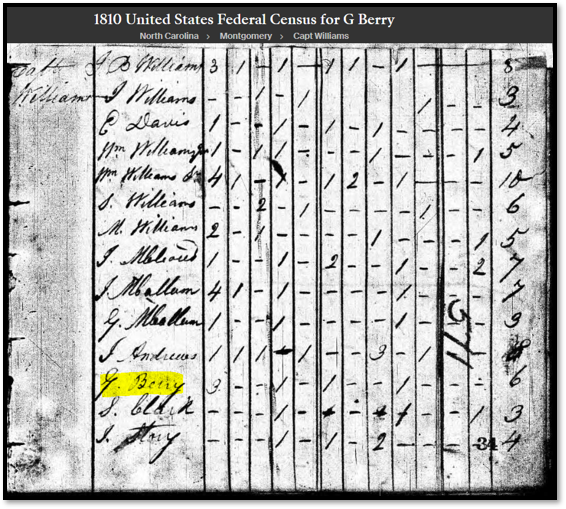 1810 United States Federal Census for G Berry
North Carolina > Montgomery > Capt Williams
J B Williams 3 1 - 1 - 1 1 - 1 - - - 8
Williams J Williams - - 1 - 1 - - - - 1 - - 3
E Davis 1 - - 1 - 1 - 1 - - - - 4
Wm Williams 1 - 1 1 - - - 1 - - - 1 5
Wm Williams Sr 4 1 - 1 - 1 2 - 1 - - - 10
S. Williams - - 2 - 1 - - - - 1 - - 6
M. Williams 2 - 1 - - - - 1 - - - 1 5
J. 1 - - 1 - 2 - - 1 - - 2 7
J. McCallum 4 1 - 1 - - - - 1 - - - 7
G. McCallum 1 - - 1 - - - - 1 - - - 3
J. Andrews 1 1 1 - 1 - - 3 - 1 - -
G. Berry 3 - - 1 - 1 - - 1 - - - 6
S. Clark - - - 1 - - - 1 - - 1 3
J. Story - - - 1 - 1 - 2 - - - - 4
571
34